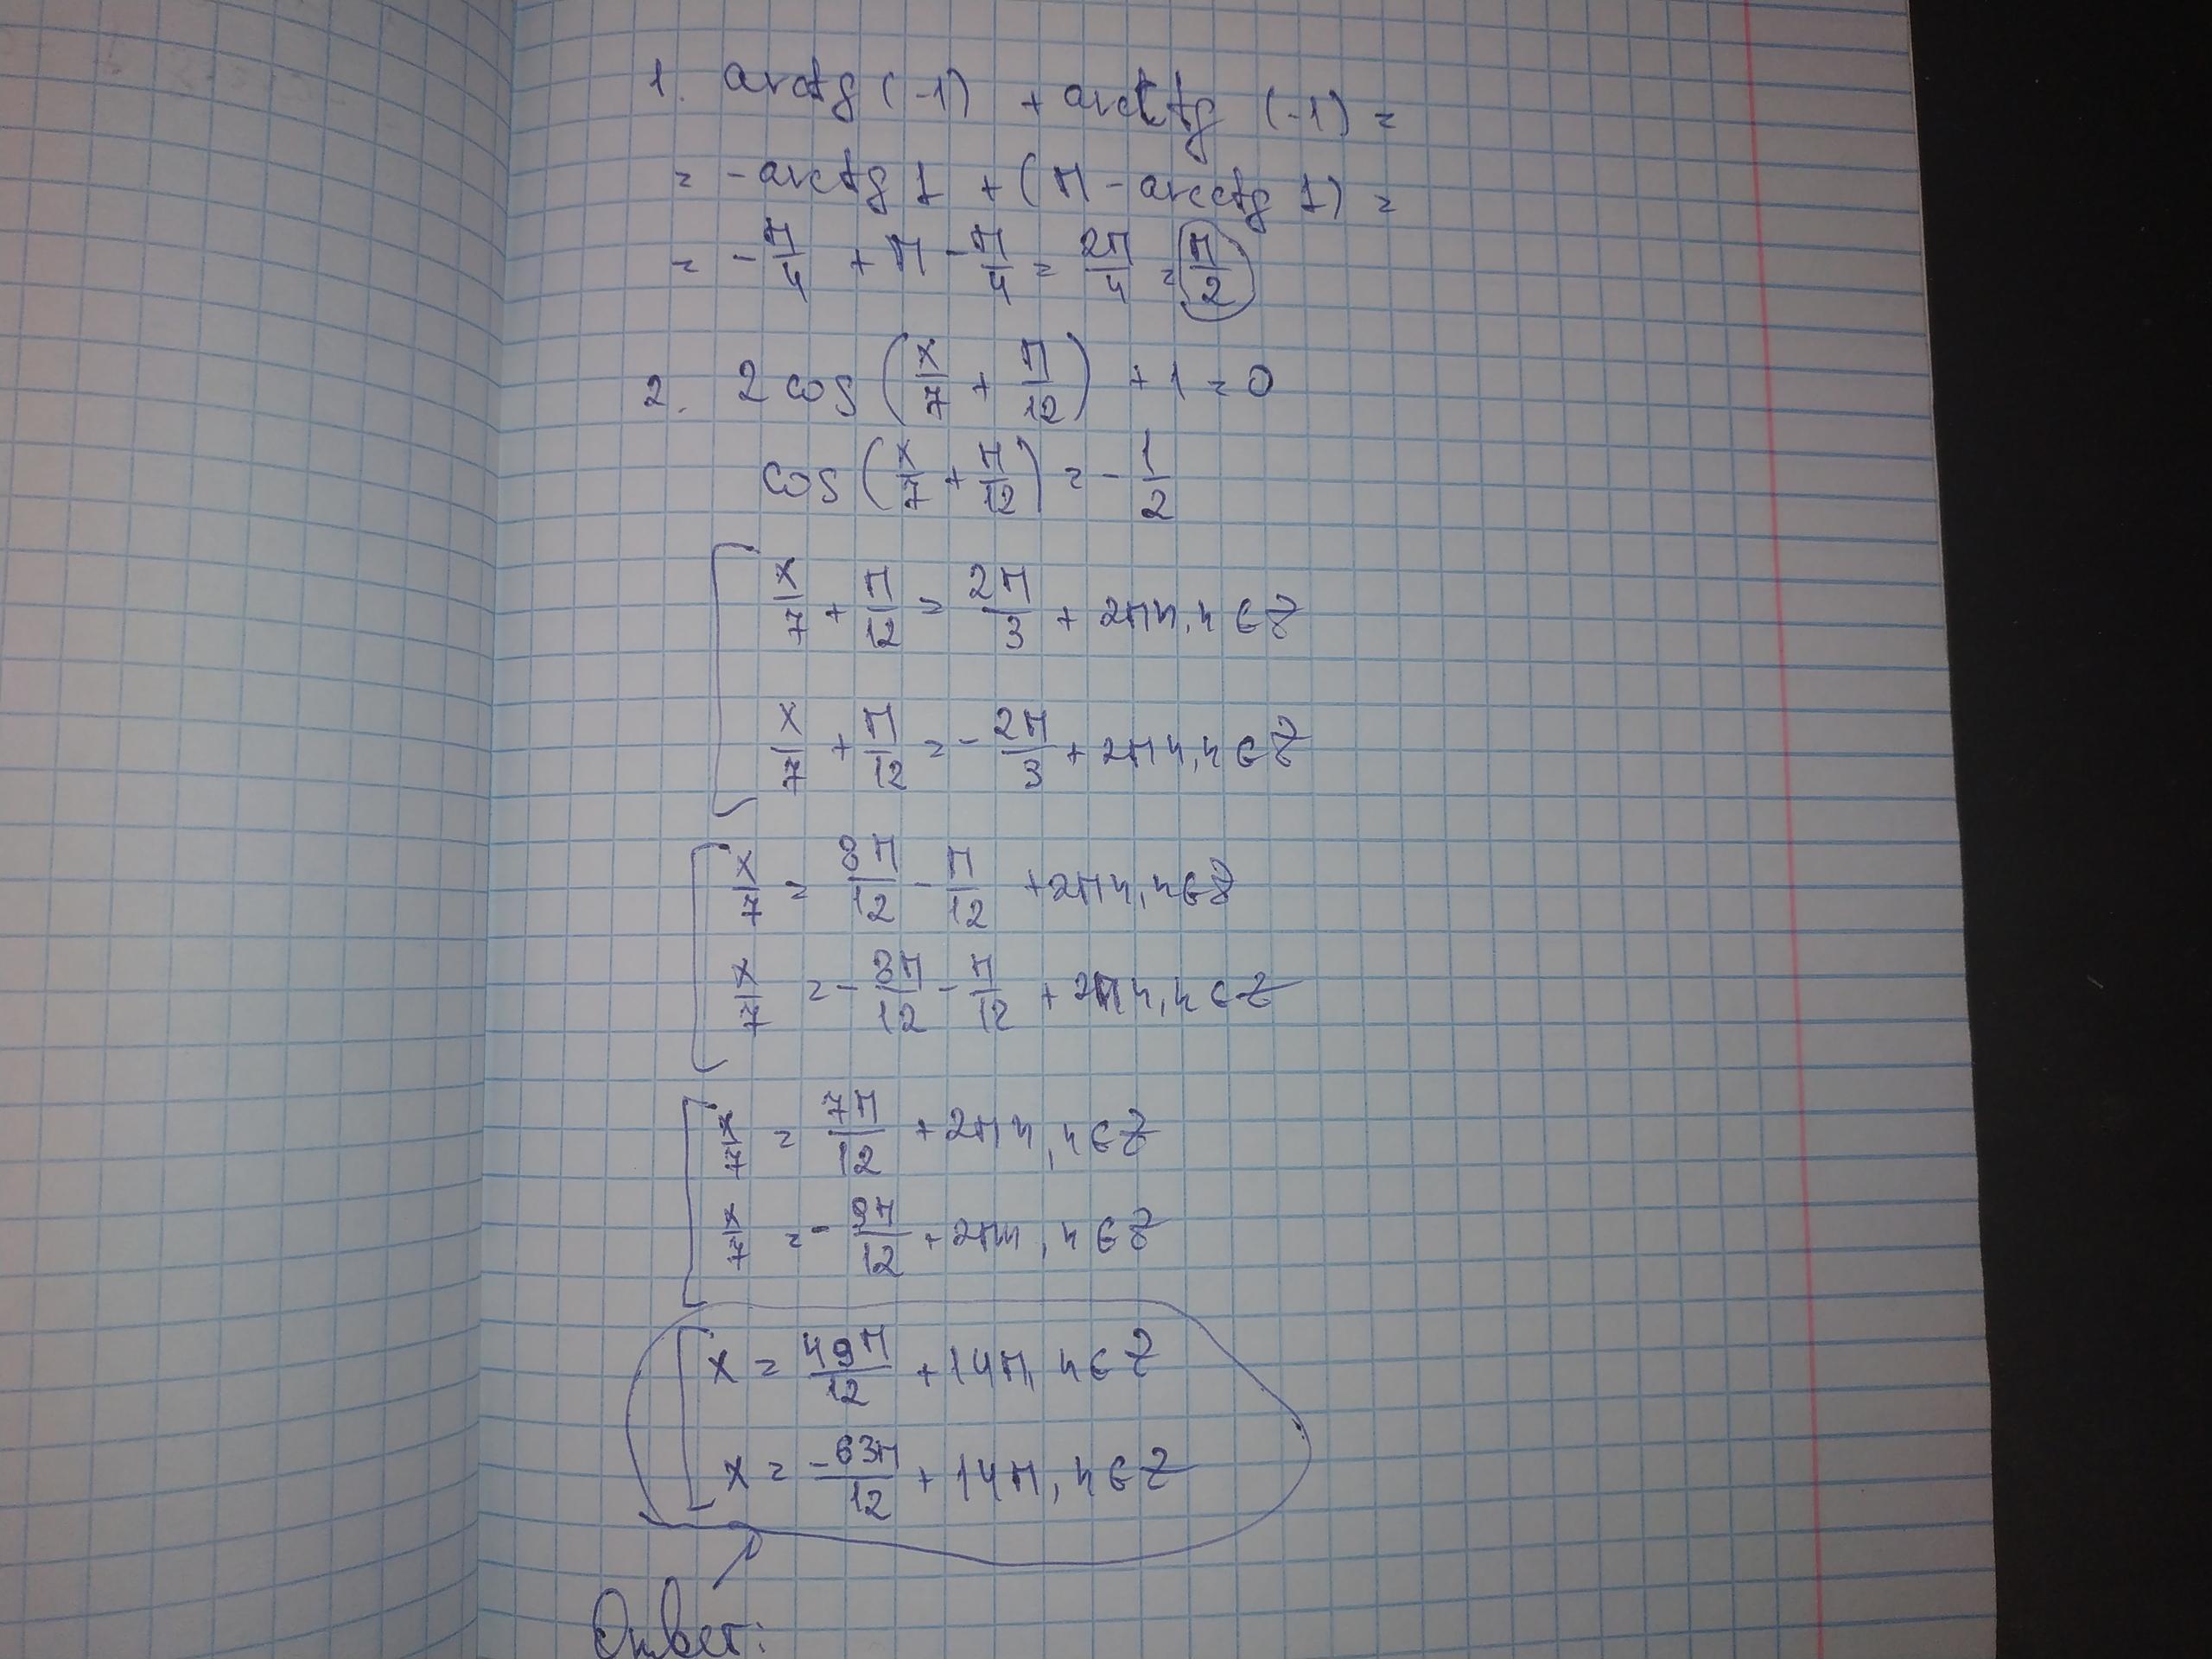 1. arctg (-1) + arcctg (-1) =
= -arctg 1 + (π - arcctg 1) =
= -π/4 + π - π/4 = 2π/4 = π/2
2. 2 cos (x/7 + π/12) + 1 = 0
cos (x/7 + π/12) = - 1/2
x/7 + π/12 = 2π/3 + 2πn, n ∈ Z
x/7 + π/12 = - 2π/3 + 2πn, n ∈ Z
x/7 = 8π/12 - π/12 + 2πn, n ∈ Z
x/7 = - 8π/12 - π/12 + 2πn, n ∈ Z
x/7 = 7π/12 + 2πn, n ∈ Z
x/7 = - 9π/12 + 2πn, n ∈ Z
x = 49π/12 + 14π, n ∈ Z
x = -63π/12 + 14π, n ∈ Z
Ответ: